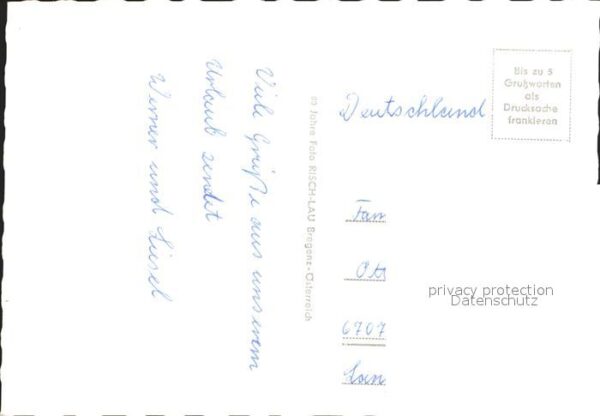 Viele Grüße aus unserem
Urlaub sendet
Werner und Liesel
80 Jahre Foto RISCH-LAU Bregenz-Österreich
Bis zu 5
Grußworten
als
Drucksache
frankieren
Deutschland
Fam
6707
privacy protection
Datenschutz